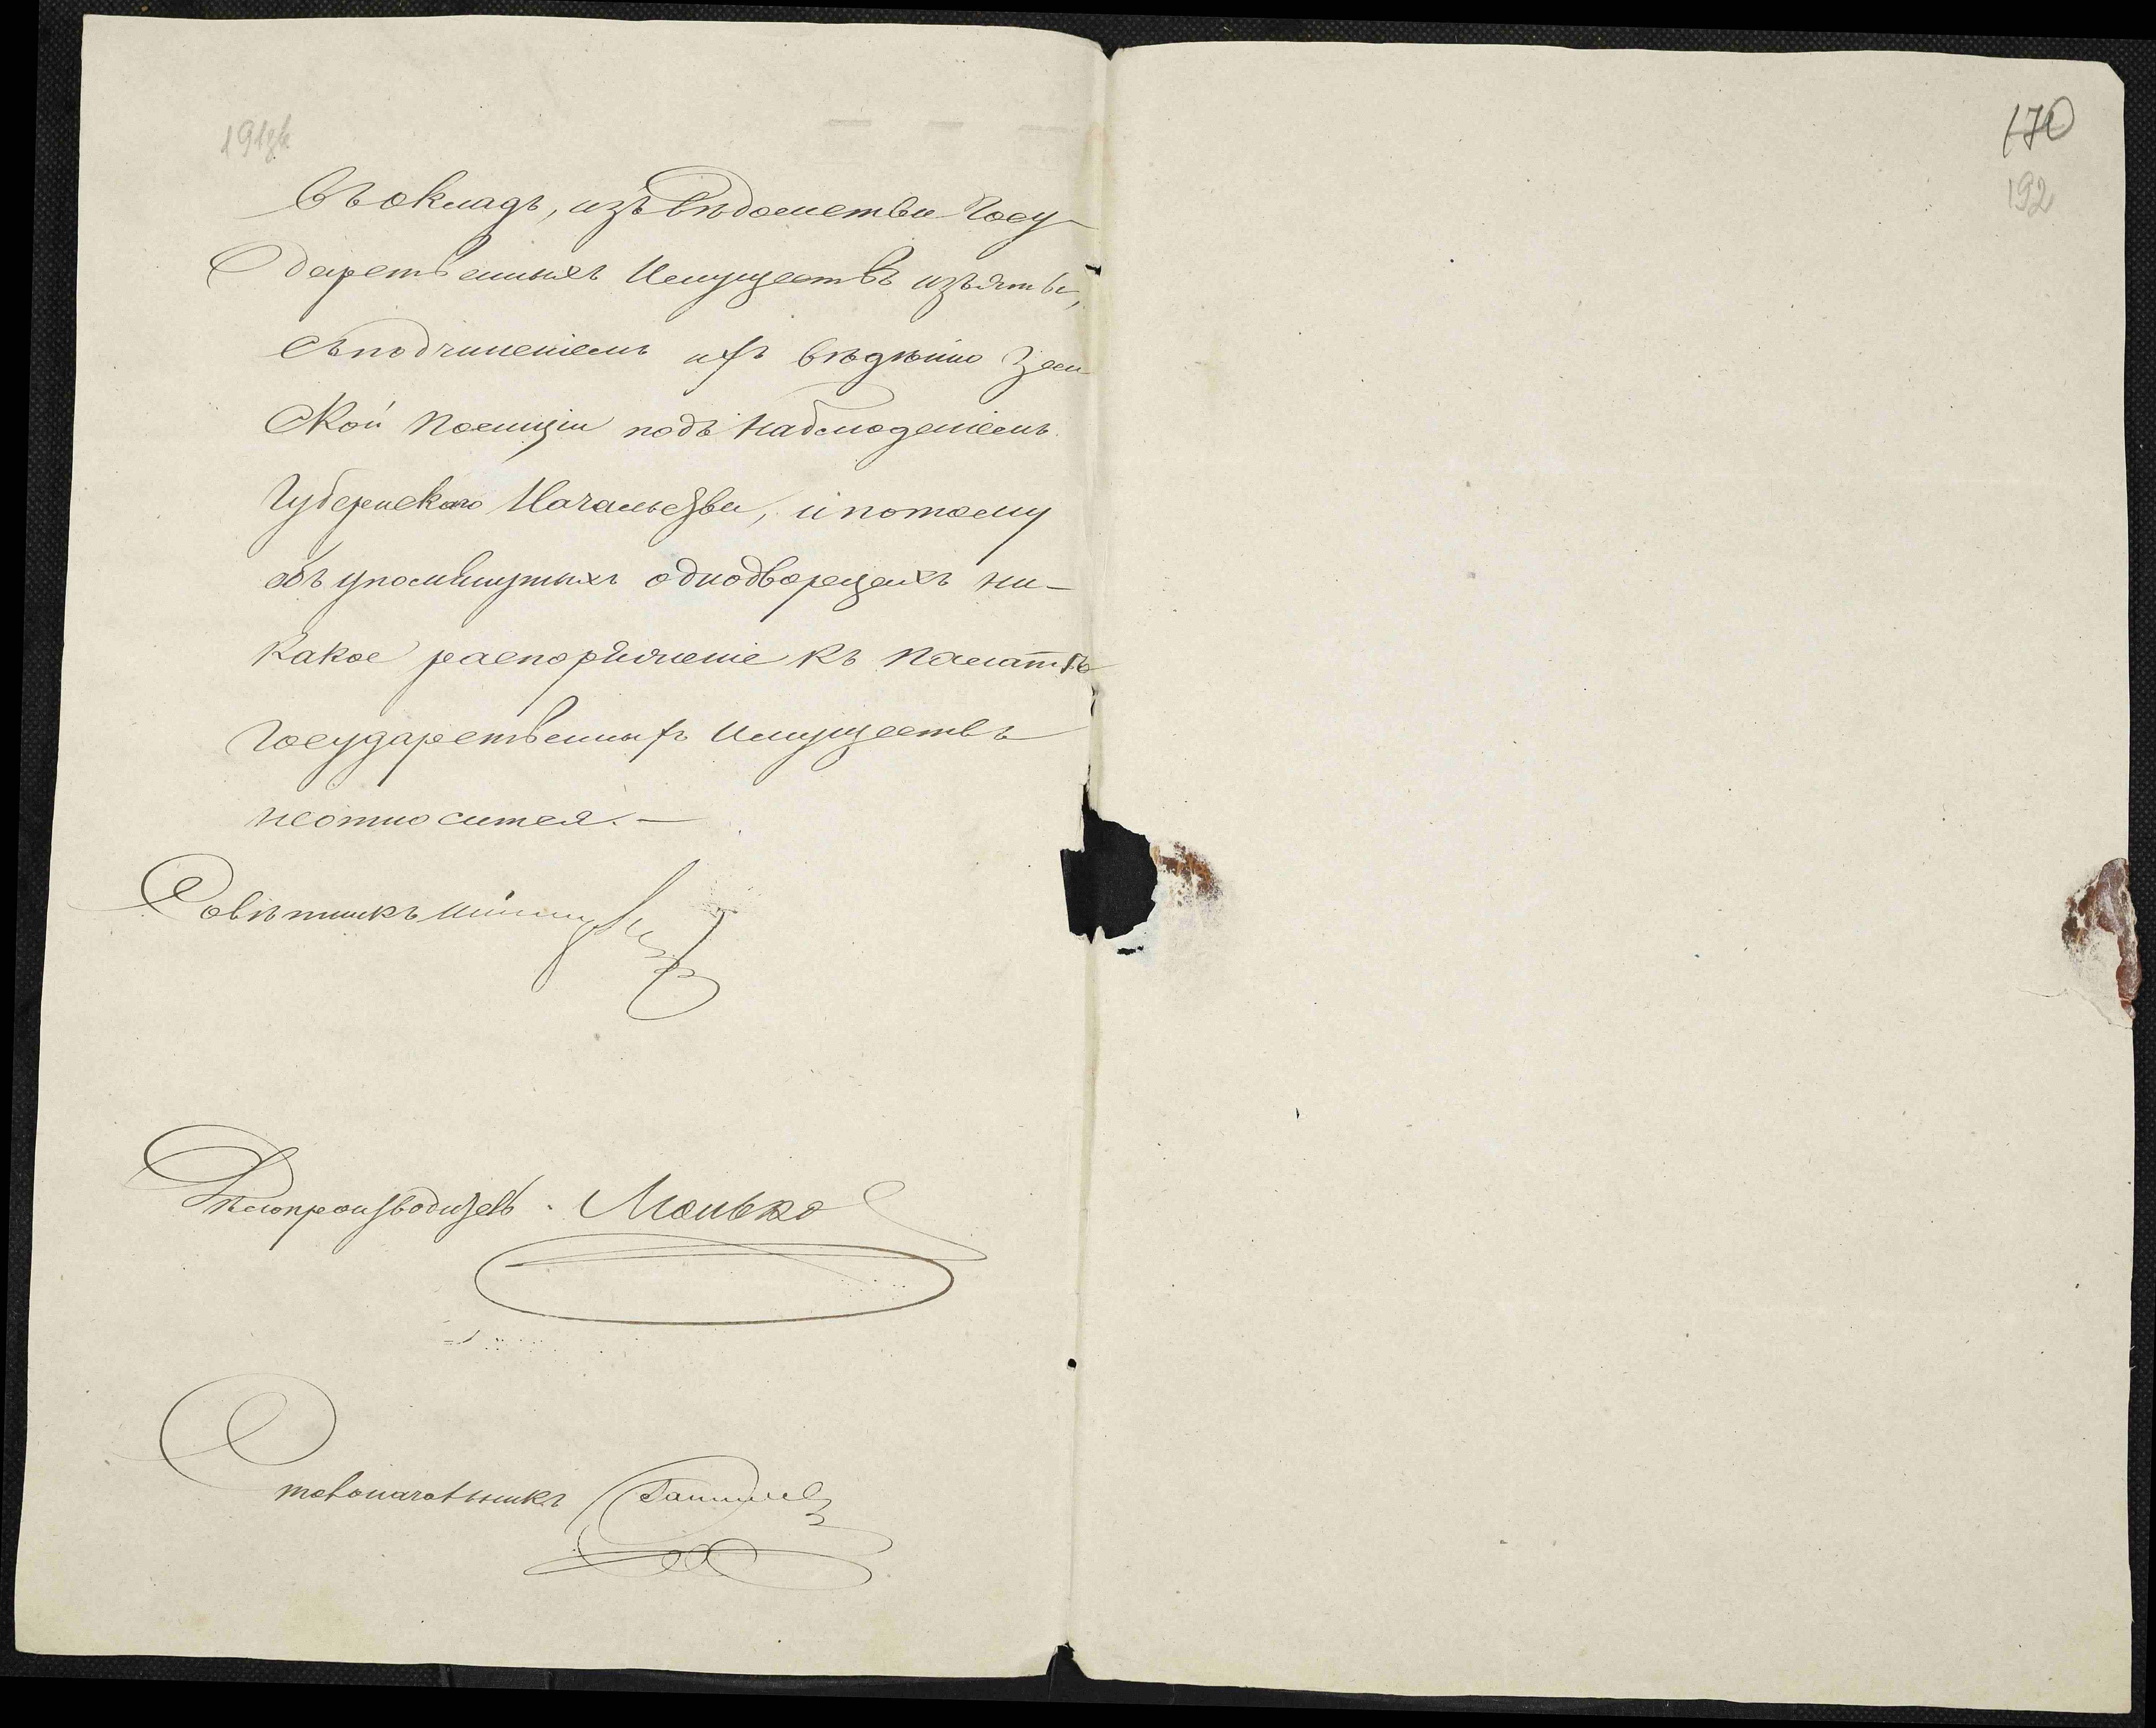 191зв
въ окладъ, изъ вѣдомства Госу
дарственныхъ Имуществъ изъяты,
съ подчиненіемъ ихъ вѣденію Зем
ской Полиціи подъ наблюденіемъ
Губернскаго Начальства, и потому
объ упомянутыхъ однодворцахъ ни-
какое распоряженіе къ Палатѣ
Государственныхъ Имуществъ
неотносится.—
Совѣтникъ
Дѣлопроизводитель Монько
Столоначальникъ
170
192